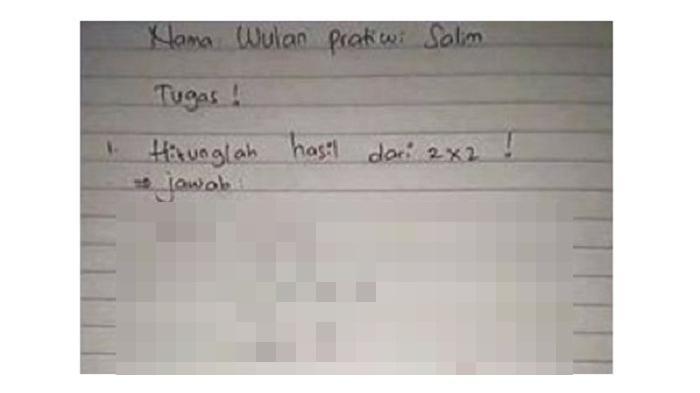 Nama: Wulan Pratiwi Salim
Tugas!
1. Hitunglah hasil dari 2x2 !
⇒ jawab: